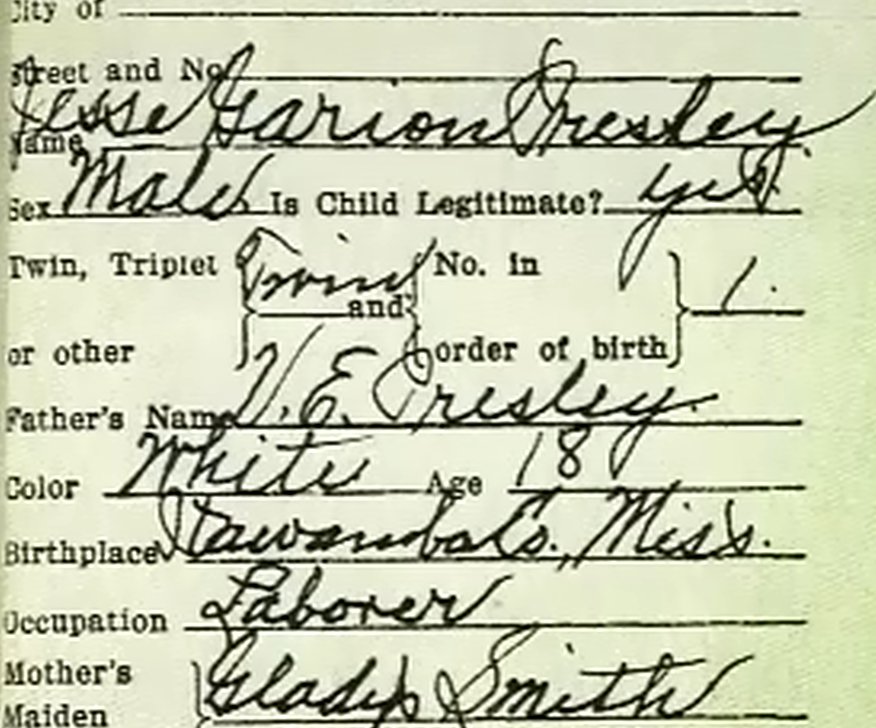 City of
Street and No.
Name Jesse Garion Presley
Sex Male Is Child Legitimate? yes.
Twin, Triplet Twin No. in 1.
and
or other order of birth
Father's Name V. E. Presley
Color White Age 18
Birthplace Itawamba Co., Miss.
Occupation Laborer
Mother's Gladys Smith
Maiden